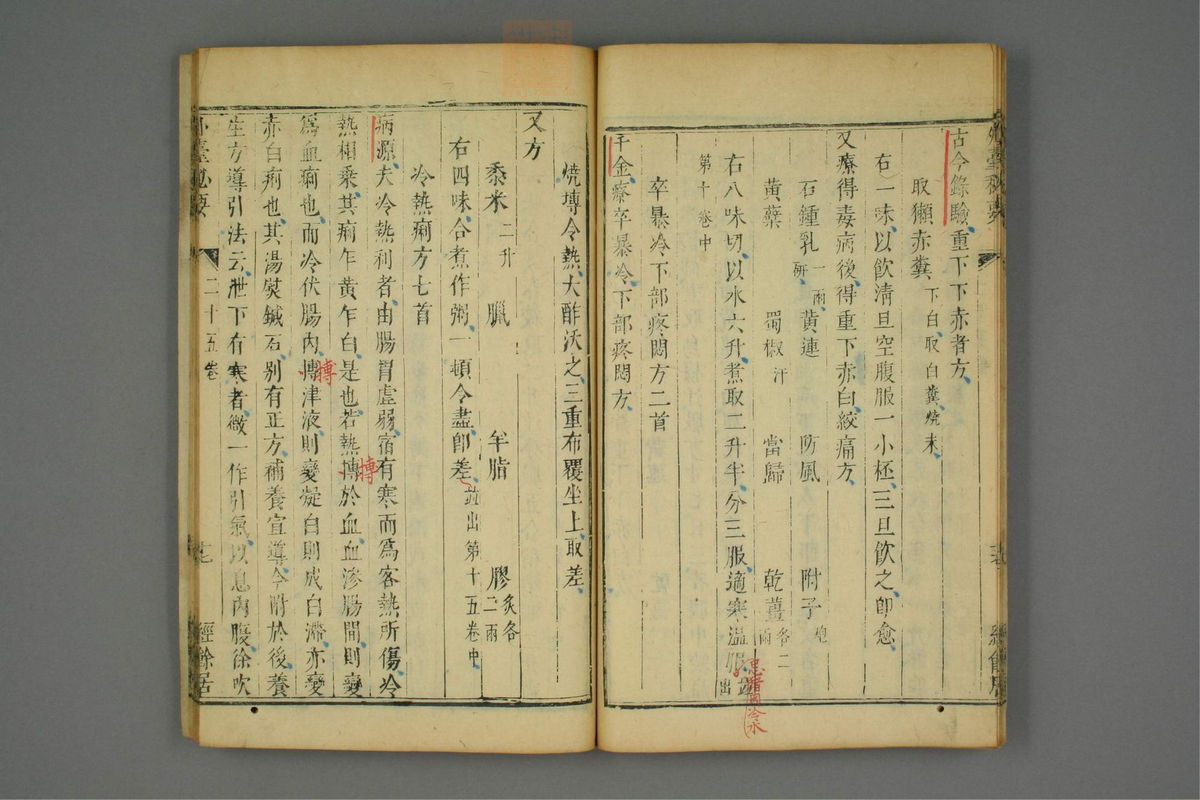 古今錄驗重下下赤者方
取獺赤糞下白取白糞燒末
右一味以飲清旦空腹服一小杯三旦飲之卽愈
又療得毒病後得重下赤白絞痛方
石鍾乳一兩研 黃連 防風 附子炮
黃蘗 蜀椒汗 當歸 乾薑各二兩
右八味切以水六升煮取二升半分三服適寒溫服並出
第十卷中
卒暴冷下部疼悶方二首
千金療卒暴冷下部疼悶方
燒塼令熱大酢沃之三重布覆坐上取差
又方
黍米二升 臘 羊脂 膠炙各二兩
右四味合煮作粥一頓令盡卽差並出第十五卷中
冷熱痢方七首
病源夫冷熱利者由腸胃虛弱宿有寒而爲客熱所傷冷
熱相乘其痢乍黃乍白是也若熱搏於血血滲腸間則變
爲血痢也而冷伏腸內搏津液則變凝白則成白滯亦變
赤白痢也其湯熨鍼石別有正方補養宣導今附於後養
生方導引法云泄下有寒者微一作引氣以息內腹徐吹
二十五卷
經餘居
搏
搏